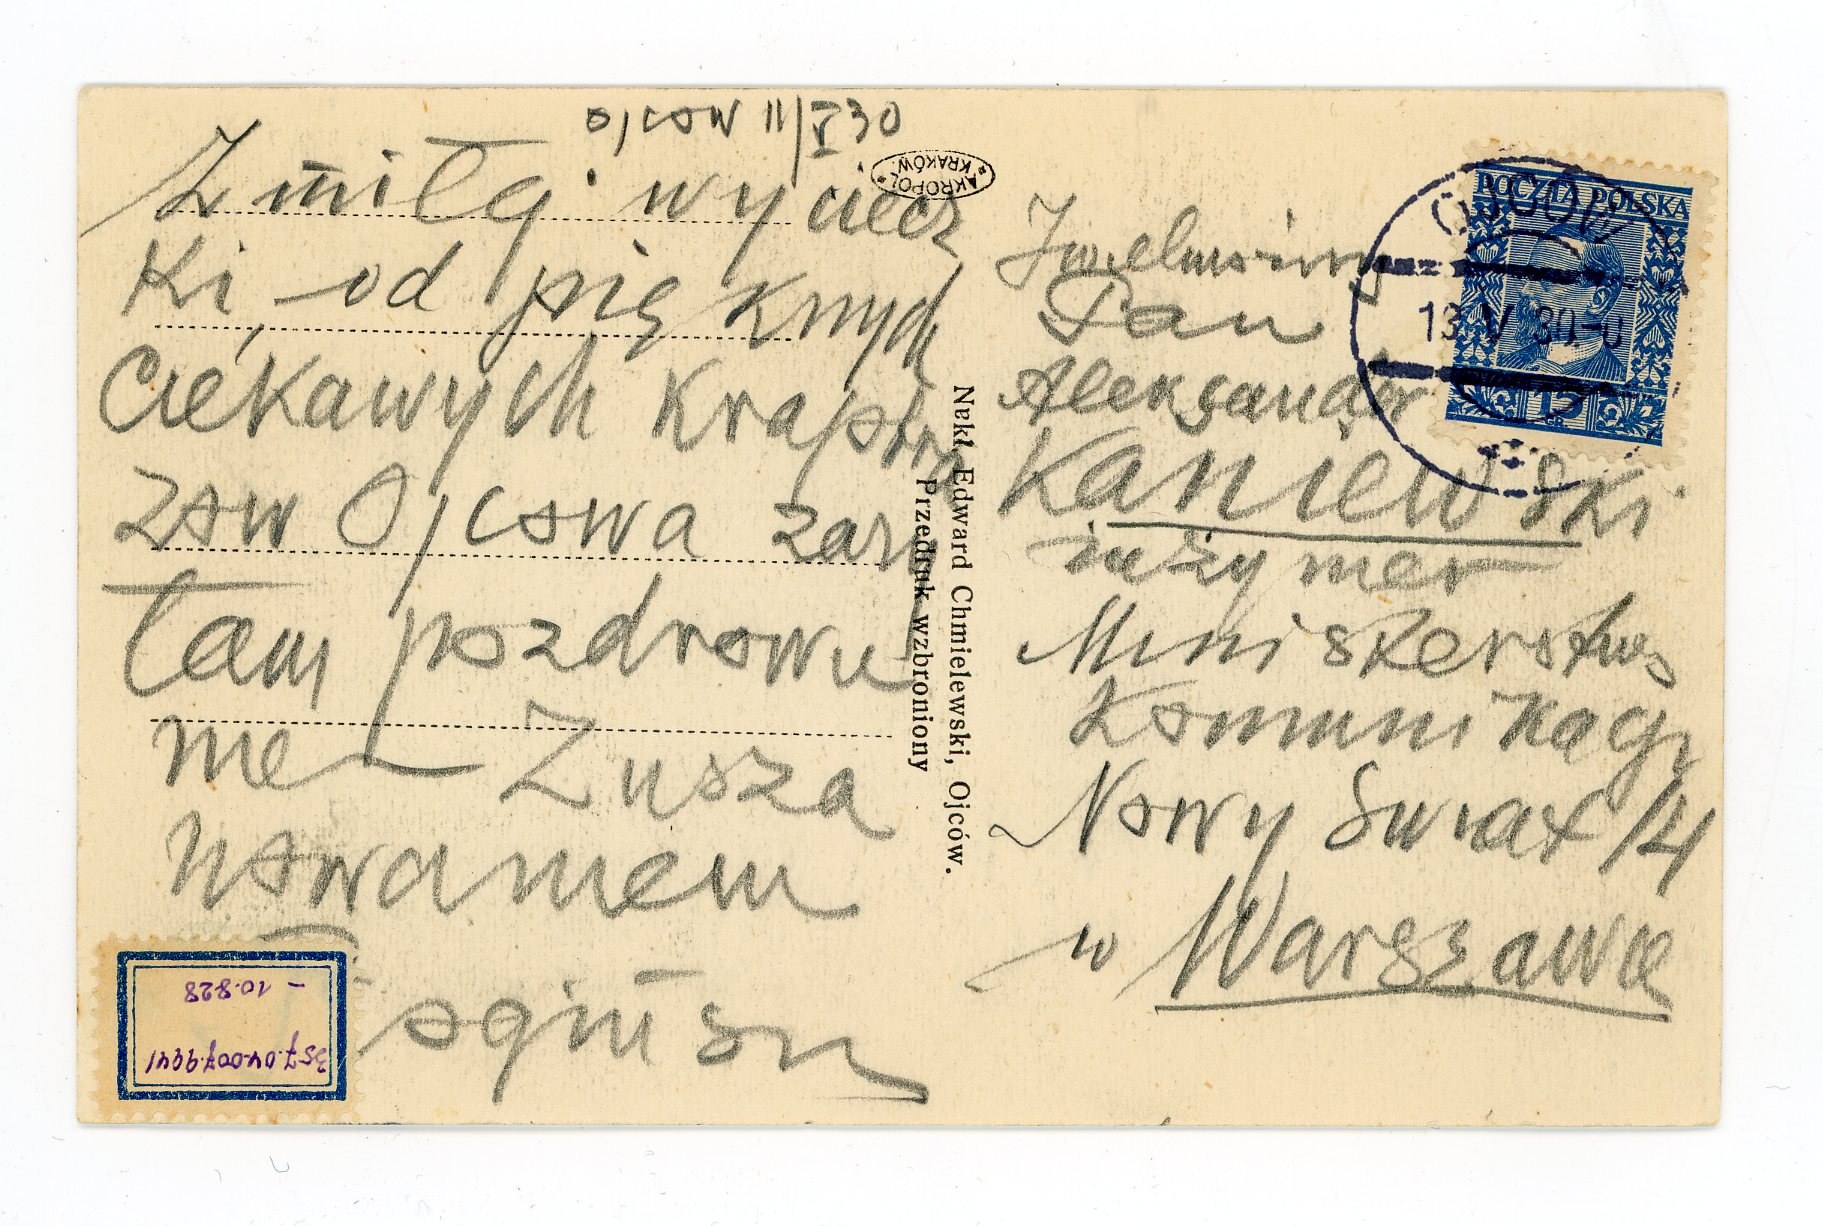 Ojcow 11/V 30
Z miłej wyciecz
ki, od pięknych
ciekawych krajobra
zow Ojcowa zara
tam pozdrowie
nie
nowaniem
AKROPOL
KRAKÓW.
Nakł. Edward Chmielewski, Ojców.
Przedruk wzbroniony
Jwielmożny
Pan
Aleksander
Kaniewski
inżynier
Ministerstwo
Komunikacji
Nowy Swiat 14
w Warszawie
POCZTA POLSKA
15
GR
OJCÓW
13 V 30.-0
357.04.007.9941
- 10.828